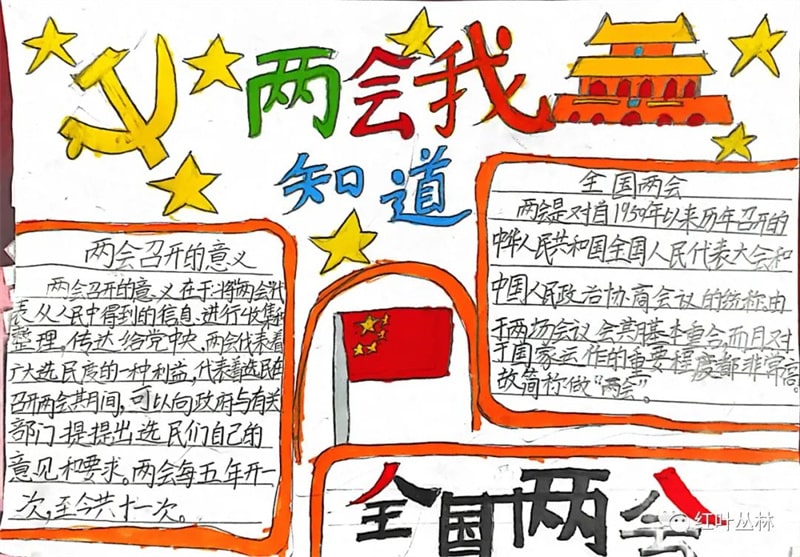 两会我
知道
两会召开的意义
两会召开的意义在于:将两会代
表从人民中得到的信息进行收集和
整理。传达给党中央。两会代表着
广大选民度的一种利益,代表着选民在
召开两会期间,可以向政府与有关
部门提提出选民们自己的
意见和要求。两会每五年开一
次,至今共十一次。
全国两会
两会是对首1950年以来历年召开的
中华人民共和国全国人民代表大会和
中国人民政治协商会议的统称,由
于两场会议会期基本重合,而且对
于国家运作的重要程度都非常高。
故简称做“两会”。
全国两会
红叶丛林